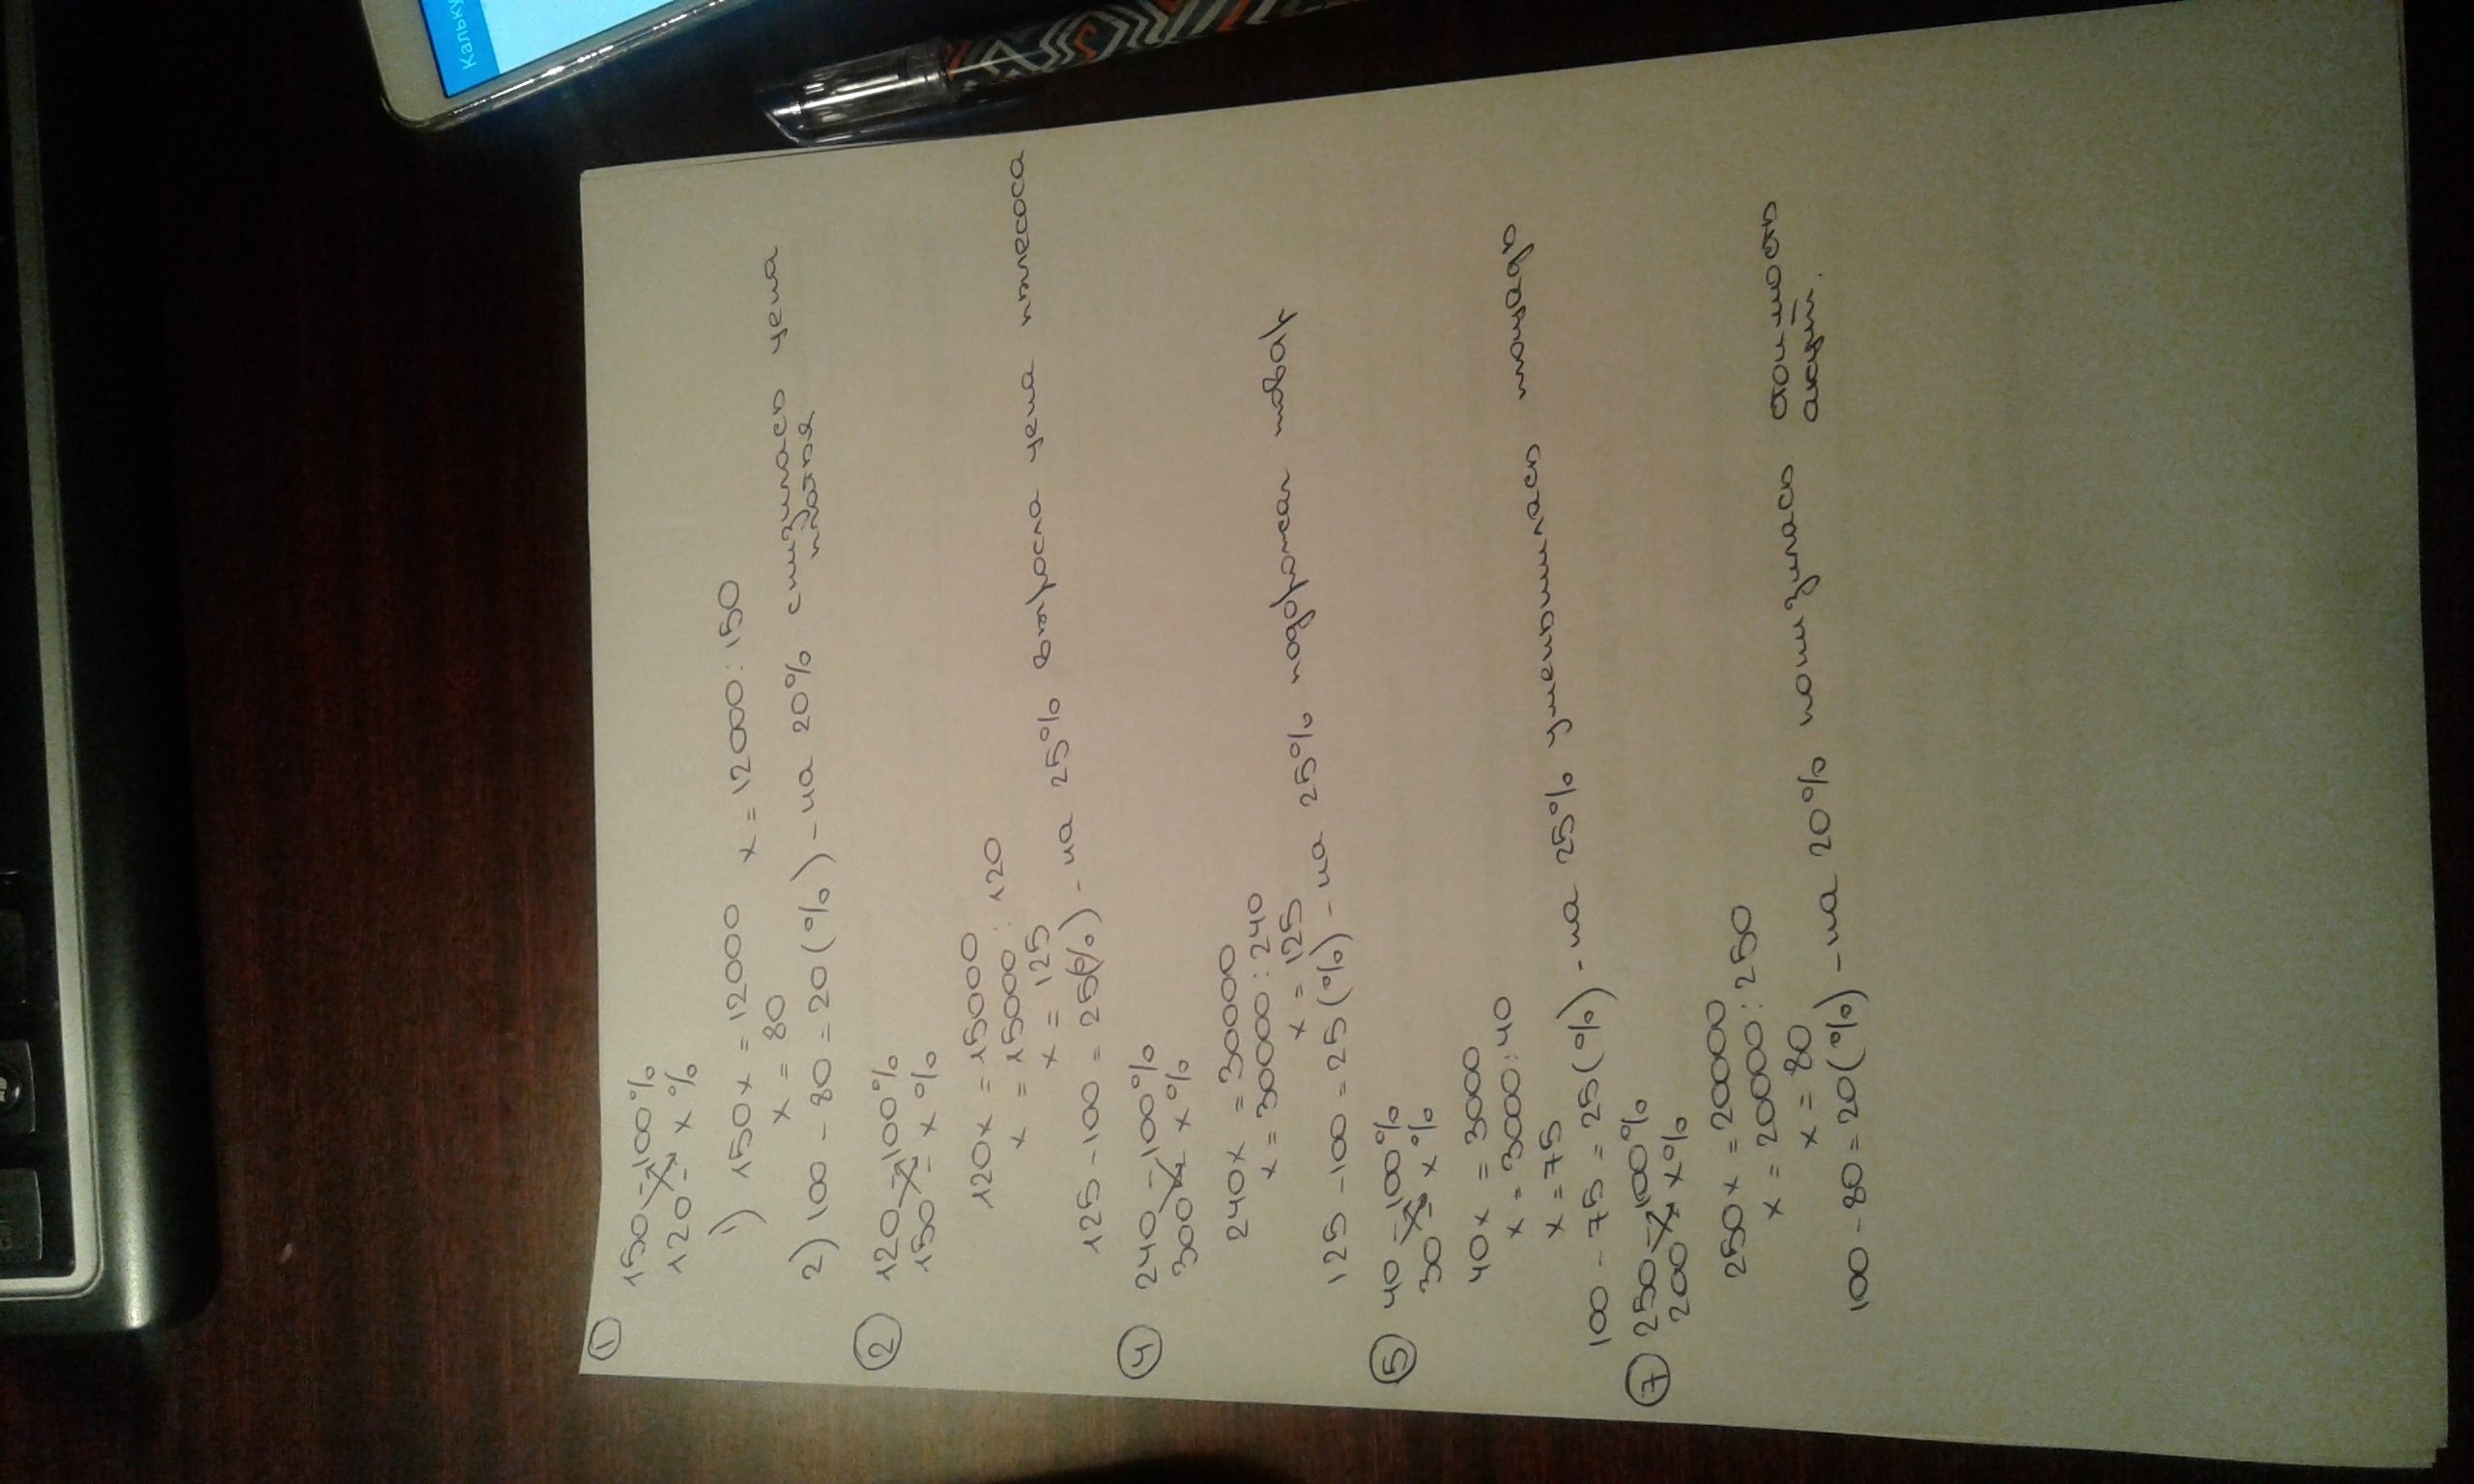 Кальку
1
150 – 100%
120 – x %
1) 150x = 12000 x = 12000 : 150
x = 80
2) 100 – 80 = 20 (%) – на 20% снизилась цена
платья
2
120 – 100%
150 – x %
120x = 15000
x = 15000 : 120
x = 125
125 – 100 = 25(%) – на 25% выросла цена пылесоса
4
240 – 100%
300 x %
240x = 30000
x = 30000 : 240
x = 125
125 – 100 = 25 (%) – на 25% подорожал товар
5
40 – 100%
30 – x %
40x = 3000
x = 3000 : 40
x = 75
100 – 75 = 25 (%) – на 25% уменьшилась площадь
7
250 – 100%
200 x %
250x = 20000
x = 20000 : 250
x = 80
100 – 80 = 20 (%) – на 20% понизилась стоимость
акций.